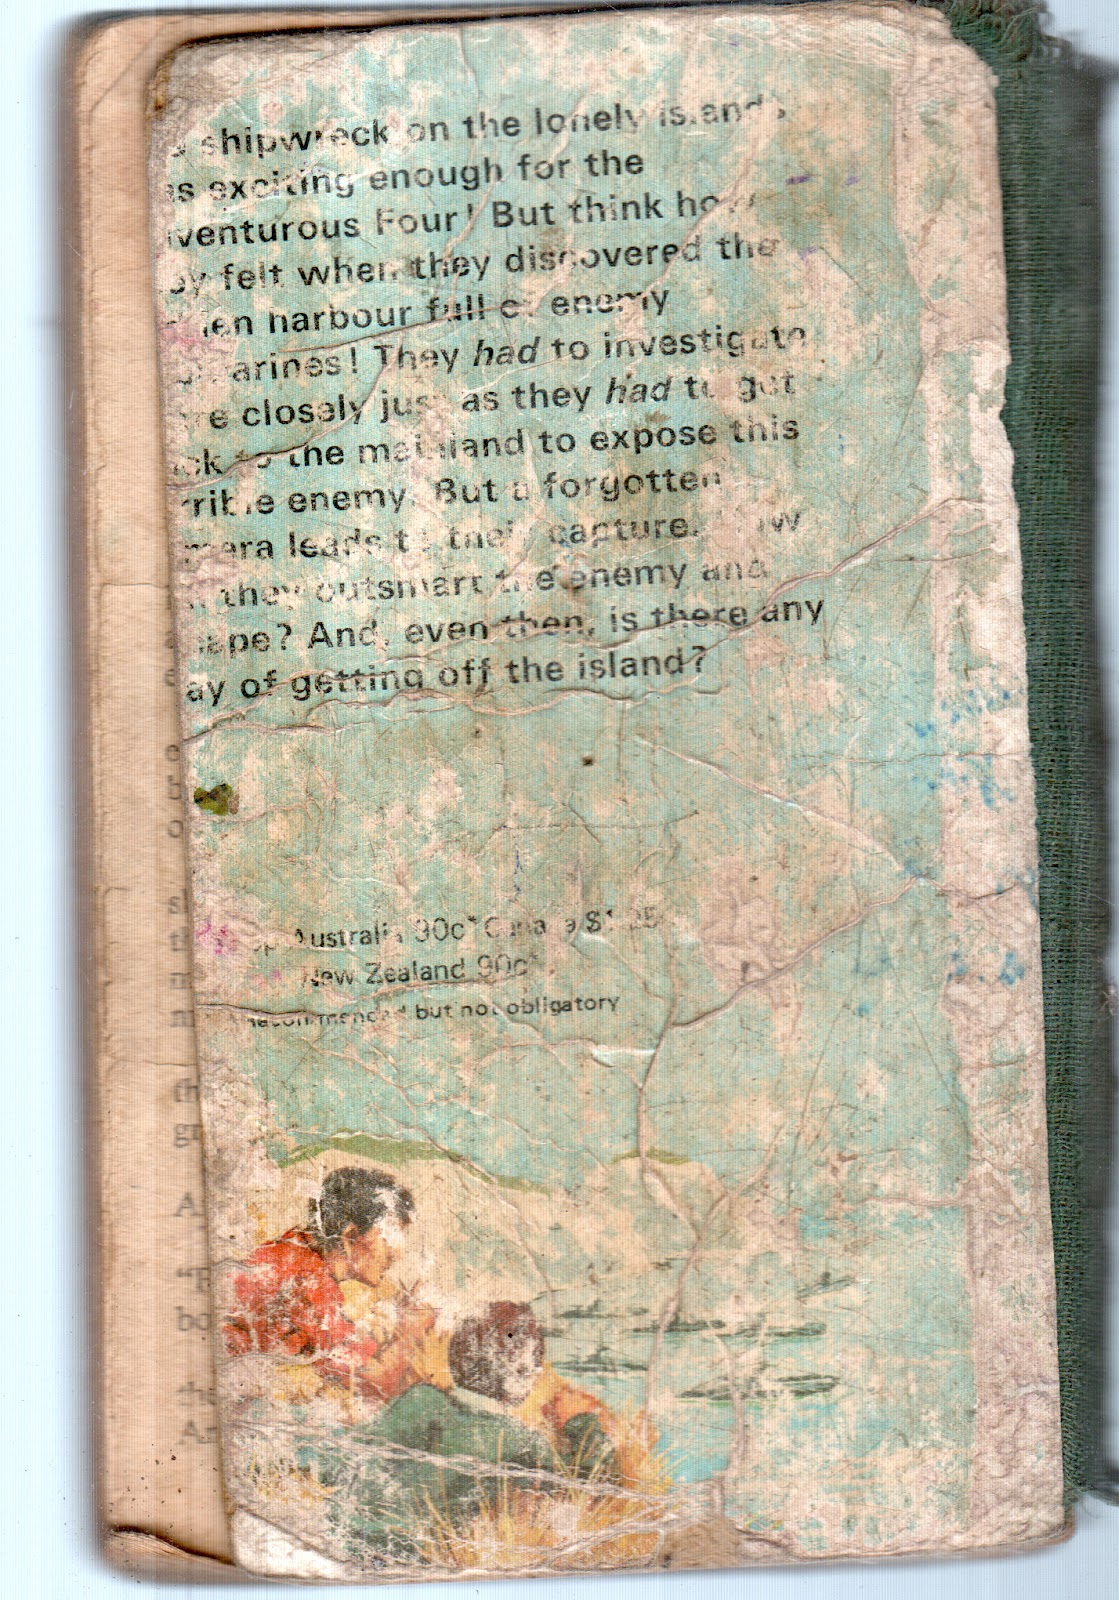 shipwreck on the lonely islands
as exciting enough for the
venturous Four! But think how
ey felt when they discovered the
harbour full of enemy
arines! They had to investigate
re closely just as they had to get
ck to the mainland to expose this
rrible enemy. But a forgotten
mera leads to their capture.
they outsmart the enemy and
cape? And, even then, is there any
ay of getting off the island?
Australia 90c* Canada $1.25
New Zealand 90c*
recommended but not obligatory